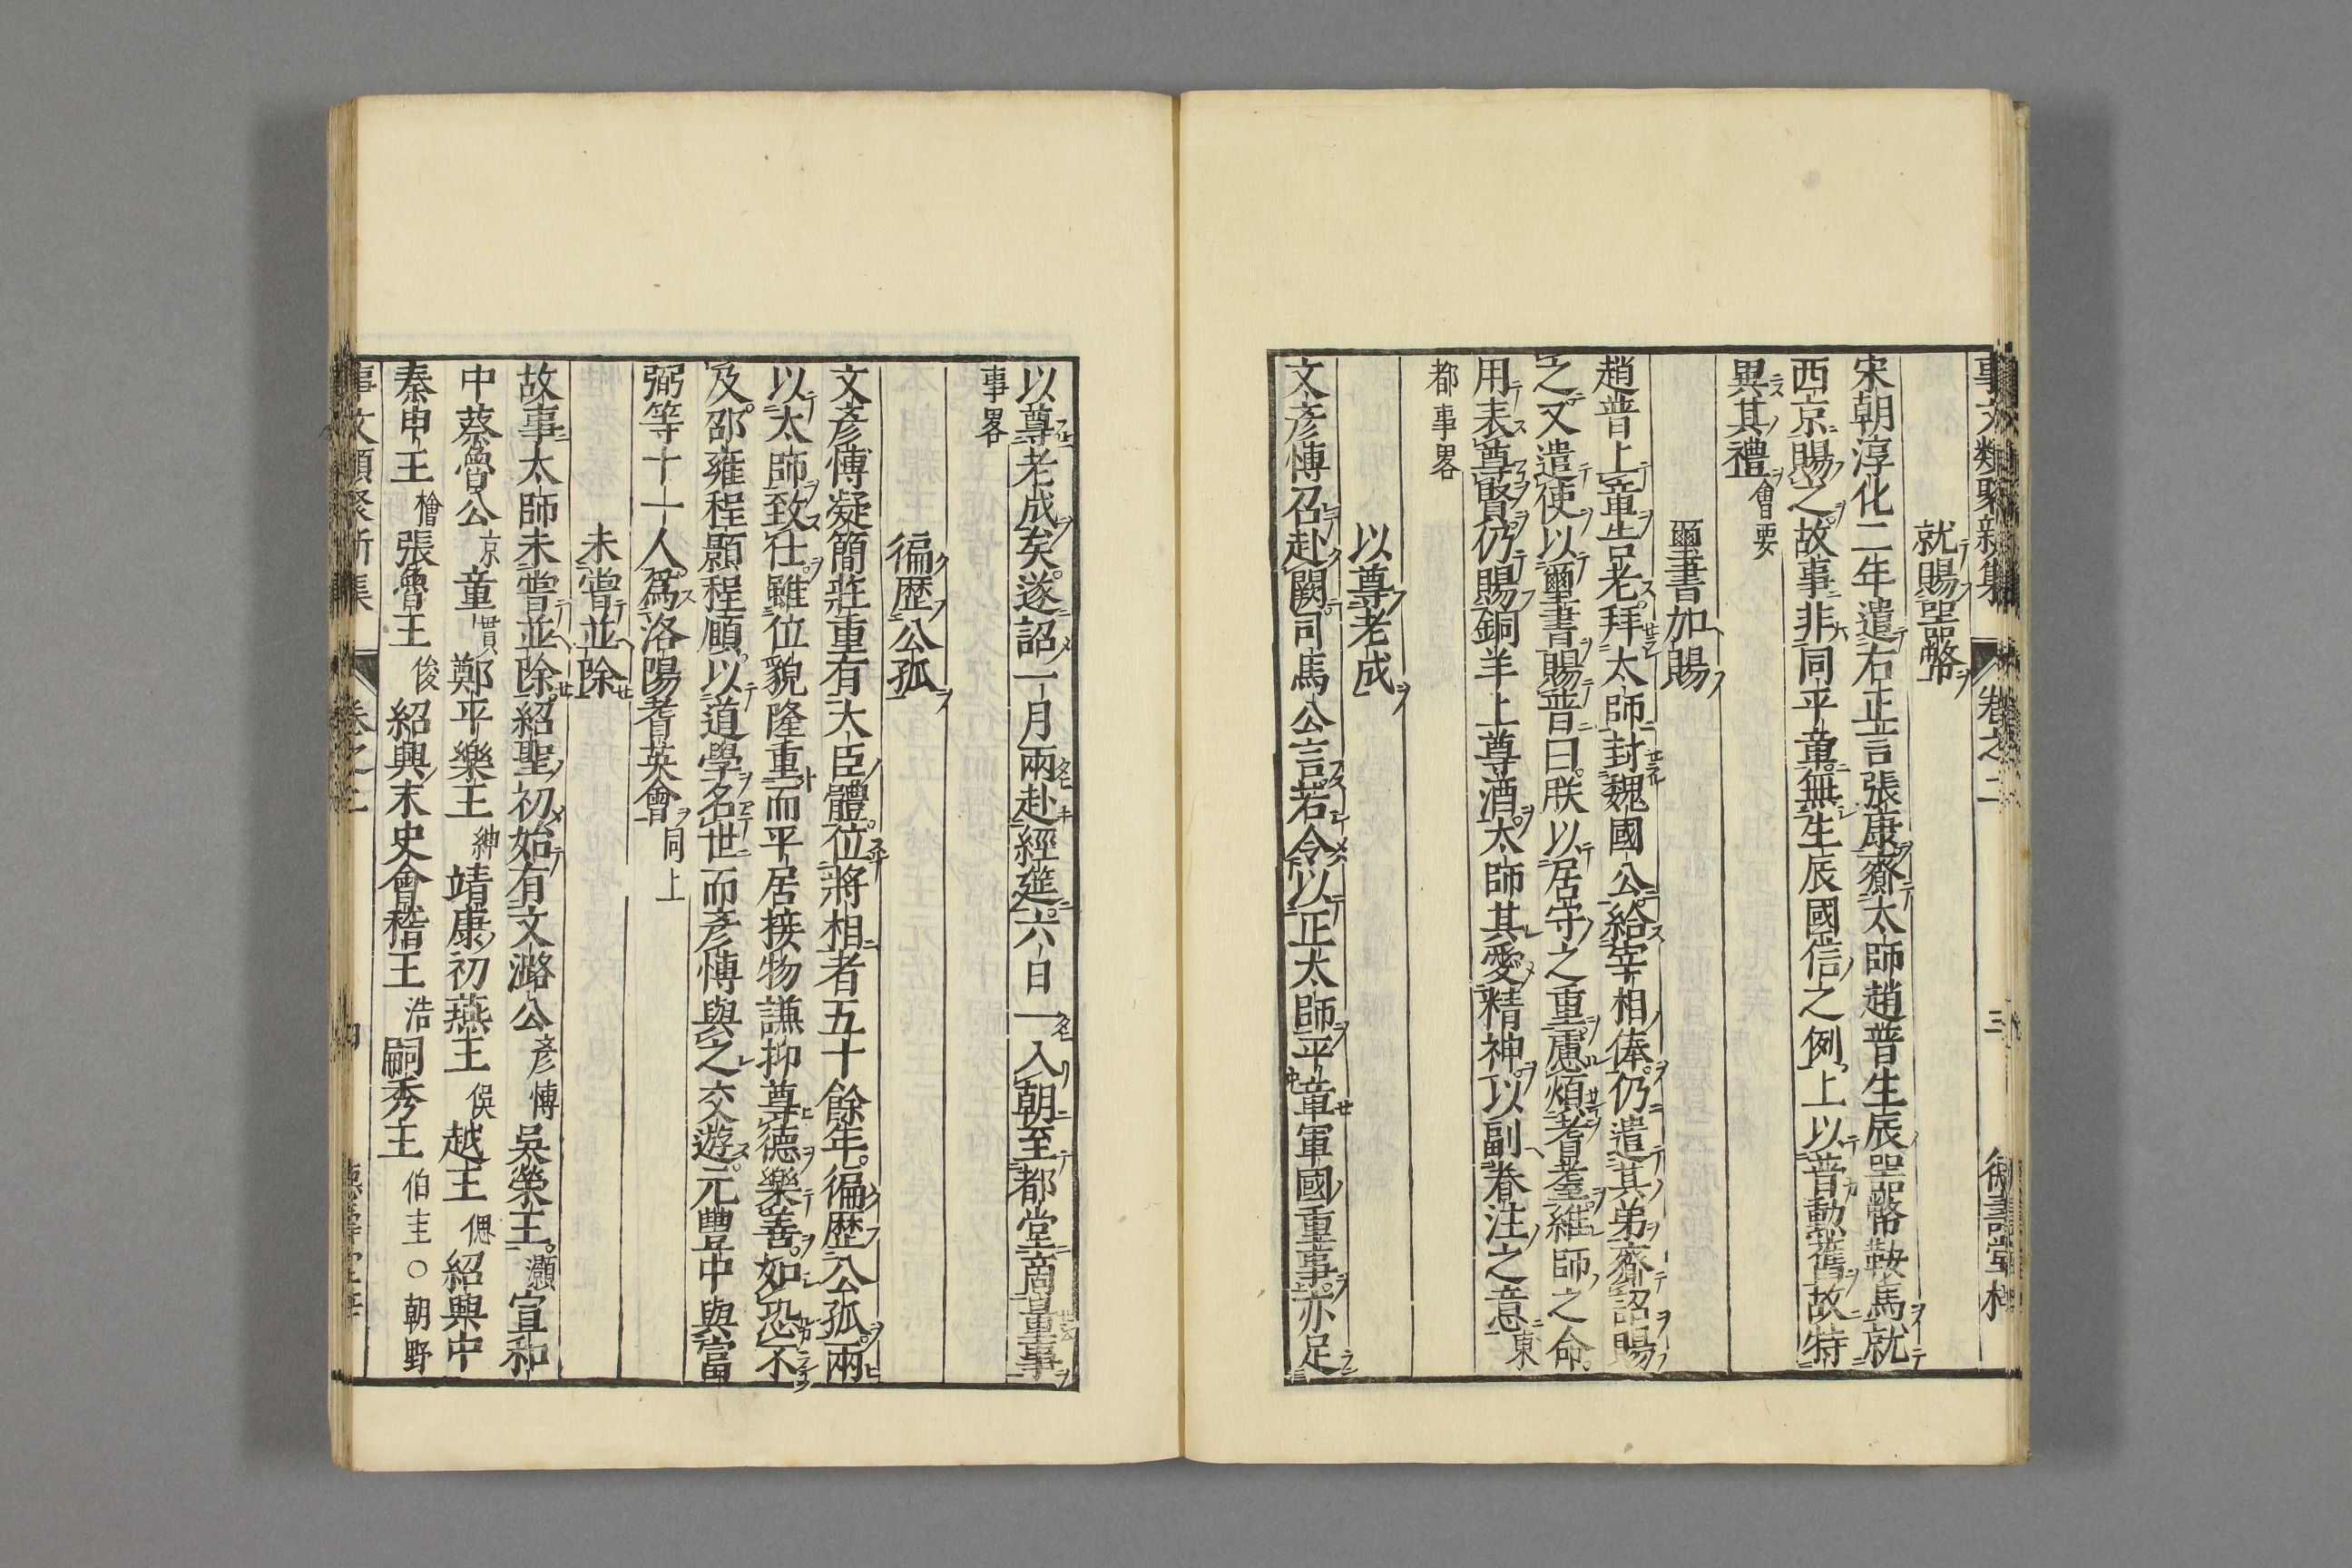 事文類聚新集 卷之二 三 德壽堂梓
就賜噐幣
宋朝淳化二年遣右正言張康齎太師趙普生辰噐幣鞍馬就
西京賜之故事非同平章無生辰國信之例上以普勲舊故特
異其禮會要
璽書加賜
趙普上章告老拜太師封魏國公給宰相俸仍遣其弟齎詔賜
之又遣使以璽書賜普曰朕以居守之重慮煩耆耋維師之命
用表尊賢仍賜銅羊上尊酒太師其愛精神以副眷注之意東
都事畧
以尊老成
文彥愽召赴闕司馬公言若令以正太師平章軍國重事亦足
以尊老成矣遂詔一月兩赴經筵六日一入朝至都堂商量事
事畧
徧歷公孤
文彥愽凝簡莊重有大臣體位將相者五十餘年徧歷公孤兩
以太師致仕雖位貌隆重而平居接物謙抑尊德樂善如恐不
及邵雍程顥程頤以道學名世而彥愽與之交遊元豐中與富
弼等十一人爲洛陽耆英會同上
未嘗並除
故事太師未嘗並除紹聖初始有文潞公彥愽吳榮王灝宣和
中蔡魯公京童貫鄭平樂王紳靖康初燕王俁越王偲紹興中
秦申王檜張魯王俊紹興末史會稽王浩嗣秀王伯圭○朝野
事文類聚新集 卷之二 四